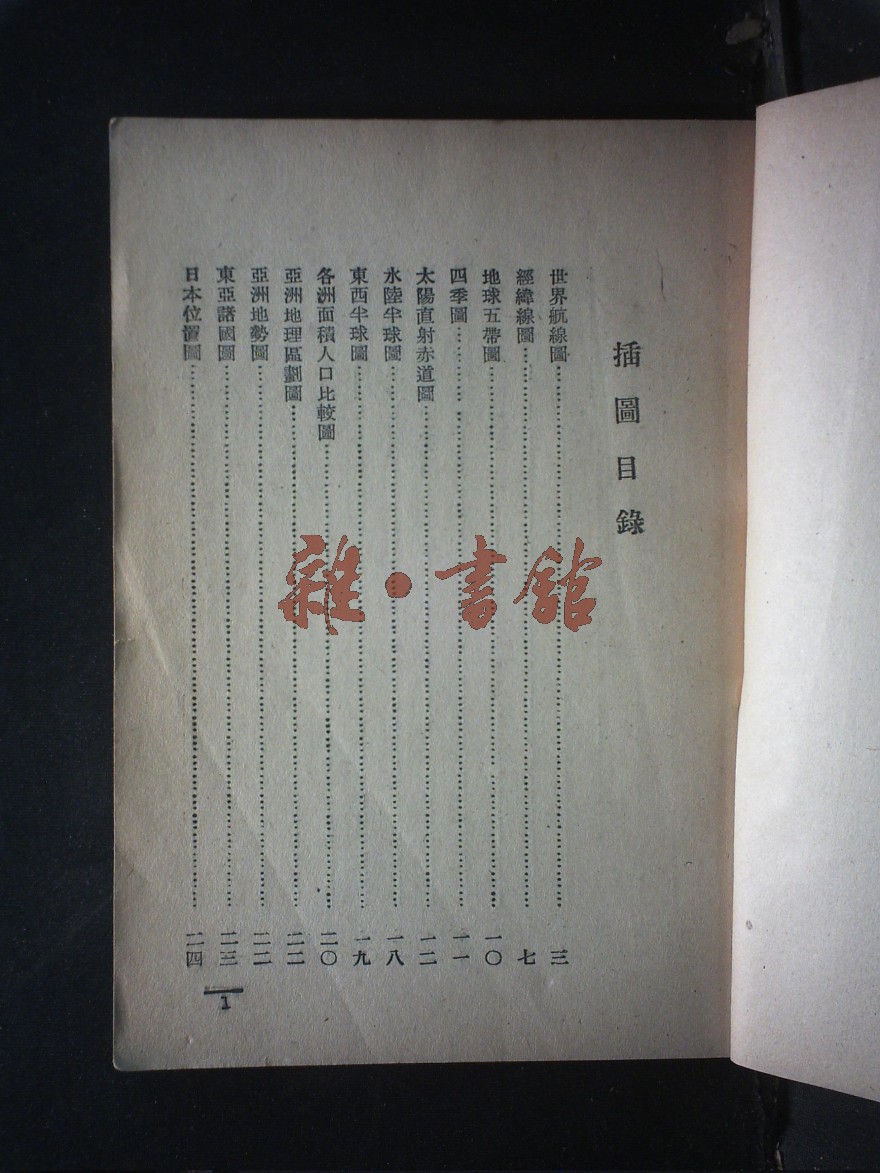 插圖目錄
世界航線圖……三
經緯線圖……七
地球五帶圖……一〇
四季圖……一一
太陽直射赤道圖……一二
水陸半球圖……一八
東西半球圖……一九
各洲面積人口比較圖……二〇
亞洲地理區劃圖……二二
亞洲地勢圖……二二
東亞諸國圖……二三
日本位置圖……二四
1
雜·書館